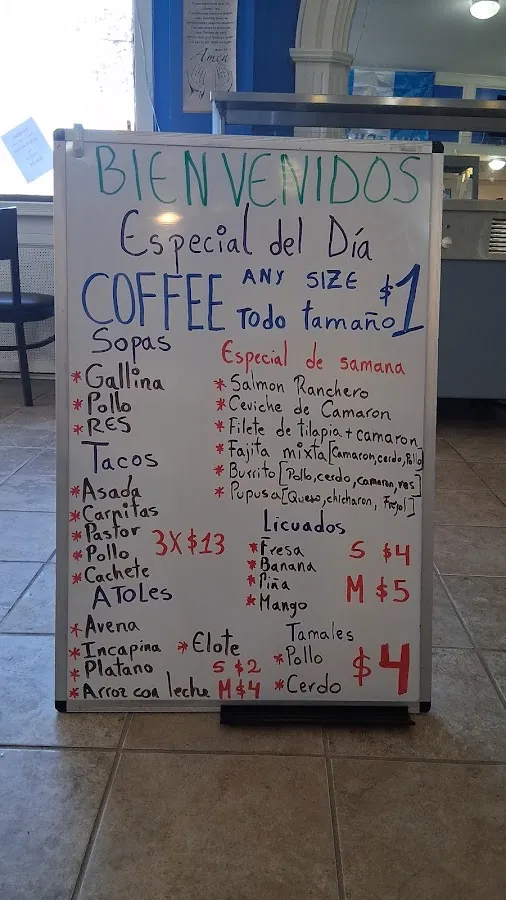 Amen
BIENVENIDOS
Especial del Día
COFFEE ANY SIZE $1
Todo tamaño
Sopas
* Gallina
* Pollo
* RES
Tacos
* Asada
* Carnitas
* Pastor
* Pollo
* Cachete
3X $13
ATOLES
* Avena
* Incapina
* Platano
* Arroz con leche
* Elote
S $2
M $4
Especial de samana
* Salmon Ranchero
* Ceviche de Camaron
* Filete de tilapia + camaron
* Fajita mixta [Camaron, cerdo, Pollo]
* Burrito [Pollo, cerdo, camaron, res]
* Pupusa [Queso, chicharon, Frejol]
Licuados
* Fresa
* Banana
* Piña
* Mango
S $4
M $5
Tamales
* Pollo
* Cerdo
$4